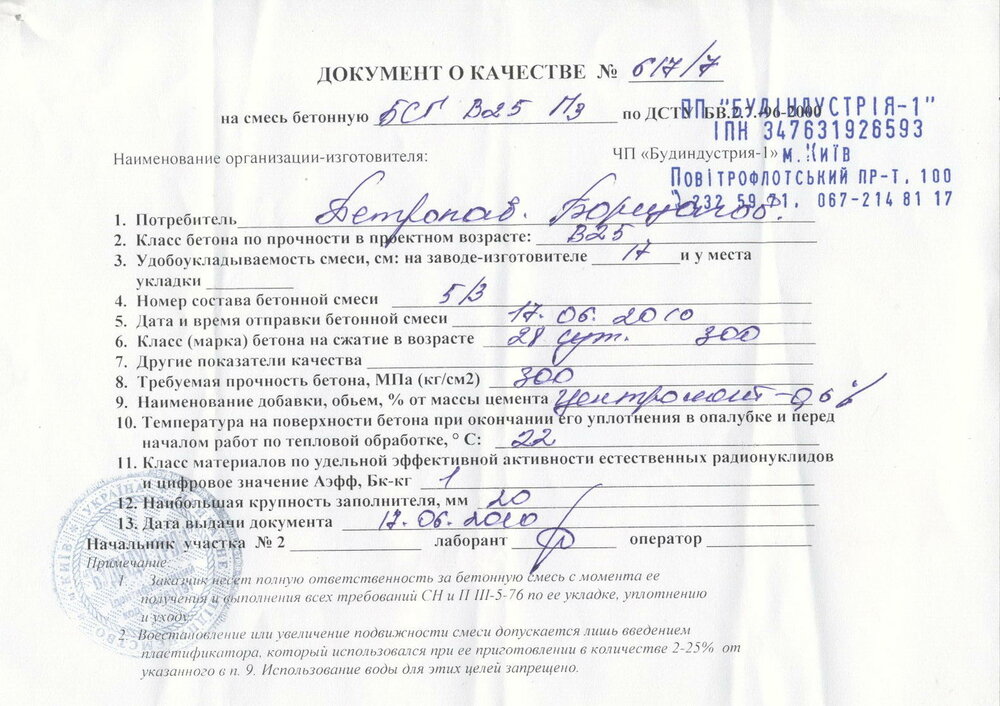 ДОКУМЕНТ О КАЧЕСТВЕ № 617/7
на смесь бетонную БСГ В25 П3 по ДСТУ БВ.2.7.-96-2000
ПП "БУДІНДУСТРІЯ-1"
ІПН 347631926593
Наименование организации-изготовителя: ЧП «Будиндустрия-1»
м.Київ
Повітрофлотський пр-т, 100
232 59 71, 067-214 81 17
1. Потребитель Петропав. Борщагов.
2. Класс бетона по прочности в проектном возрасте: В25
3. Удобоукладываемость смеси, см: на заводе-изготовителе 17 и у места
укладки
4. Номер состава бетонной смеси 5/3
5. Дата и время отправки бетонной смеси 17.06.2010
6. Класс (марка) бетона на сжатие в возрасте 28 сут. 300
7. Другие показатели качества
8. Требуемая прочность бетона, МПа (кг/см2) 300
9. Наименование добавки, обьем, % от массы цемента 0,6%
10. Температура на поверхности бетона при окончании его уплотнения в опалубке и перед
началом работ по тепловой обработке, ° С: 22
11. Класс материалов по удельной эффективной активности естественных радионуклидов
и цифровое значение Аэфф, Бк-кг 1
12. Наибольшая крупность заполнителя, мм 20
13. Дата выдачи документа 17.06.2010
Начальник участка № 2 лаборант оператор
Примечание
1. Заказчик несет полную ответственность за бетонную смесь с момента ее
получения и выполнения всех требований СН и П III-5-76 по ее укладке, уплотнению
и уходу.
2. Восстановление или увеличение подвижности смеси допускается лишь введением
пластификатора, который использовался при ее приготовлении в количестве 2-25% от
указанного в п. 9. Использование воды для этих целей запрещено.